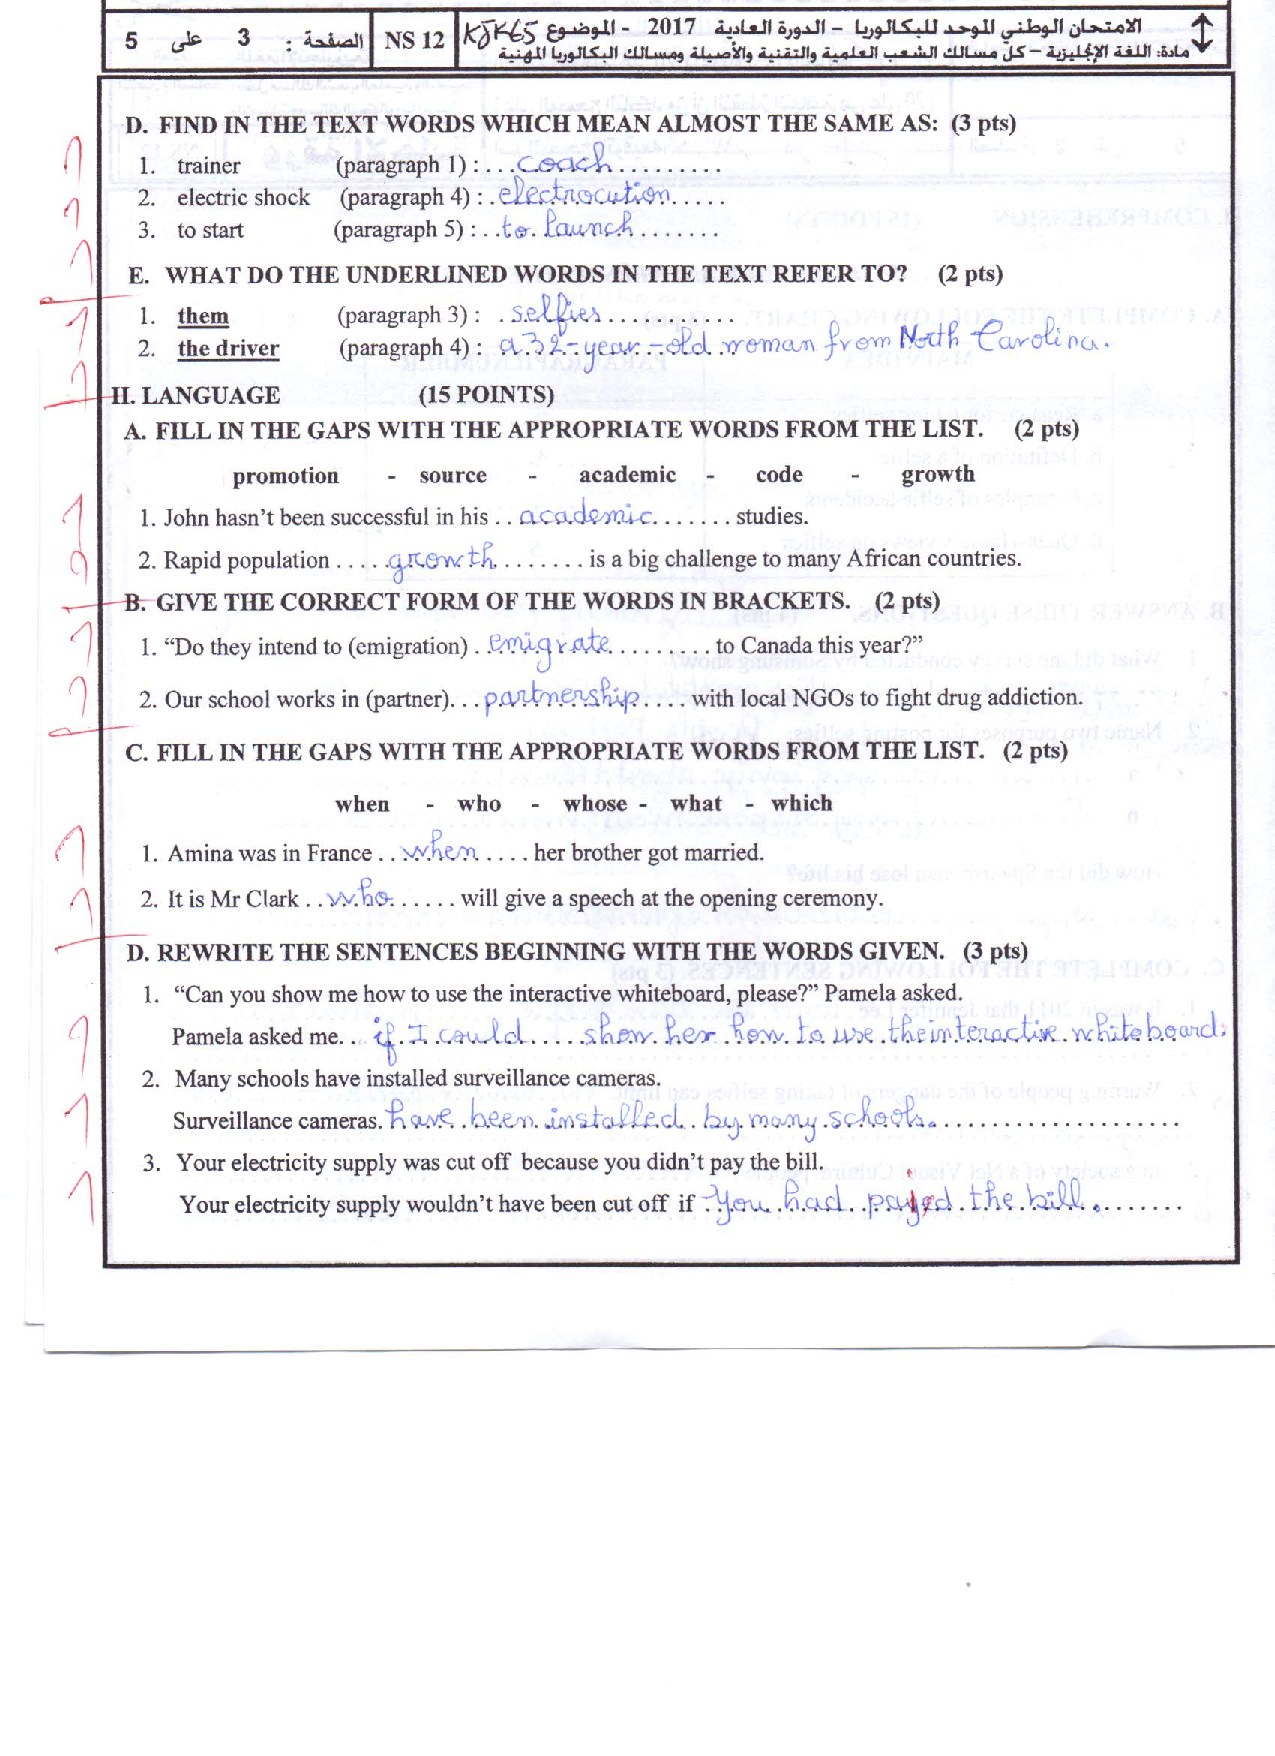 الامتحان الوطني الموحد للبكالوريا – الدورة العادية 2017 - الموضوع
مادة: اللغة الإنجليزية – كل مسالك الشعب العلمية والتقنية والأصيلة ومسالك البكالوريا المهنية
NS 12
الصفحة : 3 على 5
D. FIND IN THE TEXT WORDS WHICH MEAN ALMOST THE SAME AS: (3 pts)
1. trainer (paragraph 1) : . . . coach . . . . . . . . . .
2. electric shock (paragraph 4) : . electrocution . . . . .
3. to start (paragraph 5) : . . to launch . . . . . . .
E. WHAT DO THE UNDERLINED WORDS IN THE TEXT REFER TO? (2 pts)
1. them (paragraph 3) : . selfies . . . . . . . . . . .
2. the driver (paragraph 4) : a 32-year-old woman from North Carolina.
II. LANGUAGE (15 POINTS)
A. FILL IN THE GAPS WITH THE APPROPRIATE WORDS FROM THE LIST. (2 pts)
promotion - source - academic - code - growth
1. John hasn't been successful in his . . academic . . . . . . . studies.
2. Rapid population . . . . . growth . . . . . . . . is a big challenge to many African countries.
B. GIVE THE CORRECT FORM OF THE WORDS IN BRACKETS. (2 pts)
1. “Do they intend to (emigration) . . emigrate . . . . . . . . . to Canada this year?”
2. Our school works in (partner). . . partnership . . . . with local NGOs to fight drug addiction.
C. FILL IN THE GAPS WITH THE APPROPRIATE WORDS FROM THE LIST. (2 pts)
when - who - whose - what - which
1. Amina was in France . . when . . . . . her brother got married.
2. It is Mr Clark . . who . . . . . . will give a speech at the opening ceremony.
D. REWRITE THE SENTENCES BEGINNING WITH THE WORDS GIVEN. (3 pts)
1. “Can you show me how to use the interactive whiteboard, please?” Pamela asked.
Pamela asked me. . if I could . . . . . show her how to use the interactive whiteboard.
2. Many schools have installed surveillance cameras.
Surveillance cameras. have been installed by many schools. . . . . . . . . . . . . . . . . . . . .
3. Your electricity supply was cut off because you didn't pay the bill.
Your electricity supply wouldn't have been cut off if . you had payed the bill. . . . . . . . .